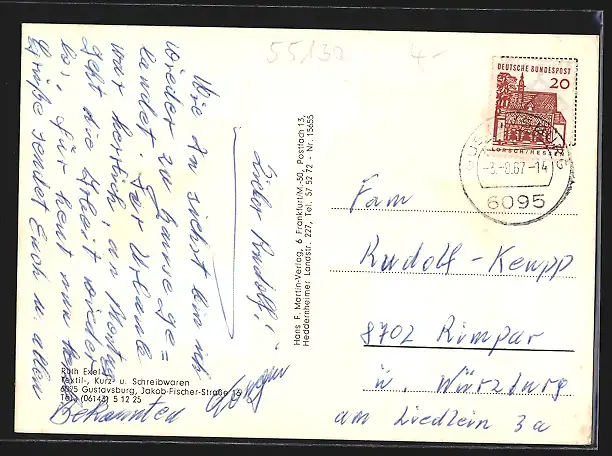 55132
4-
Lieber Rudolf!
Wie Du siehst bin ich
wieder zu Hause ge=
landet. Der Urlaub
war herrlich, am Montag
geht die Arbeit wieder
los, für heut nun
Grüße sendet Euch u. allen
Bekannten
Hans F. Martin-Verlag, 6 Frankfurt/M.-50, Postfach 13,
Heddernheimer Landstr. 227, Tel. 57 52 72 - Nr. 15655
Ruth Exel
Textil-, Kurz- u. Schreibwaren
6095 Gustavsburg, Jakob-Fischer-Straße 16
Tel. (06143) 5 12 25
DEUTSCHE BUNDESPOST
20
LORSCH/HESSEN
-3.-9.67-14
6095
Fam
Rudolf-Kempp
8702 Rimpar
ü. Würzburg
am Liedlein 3a